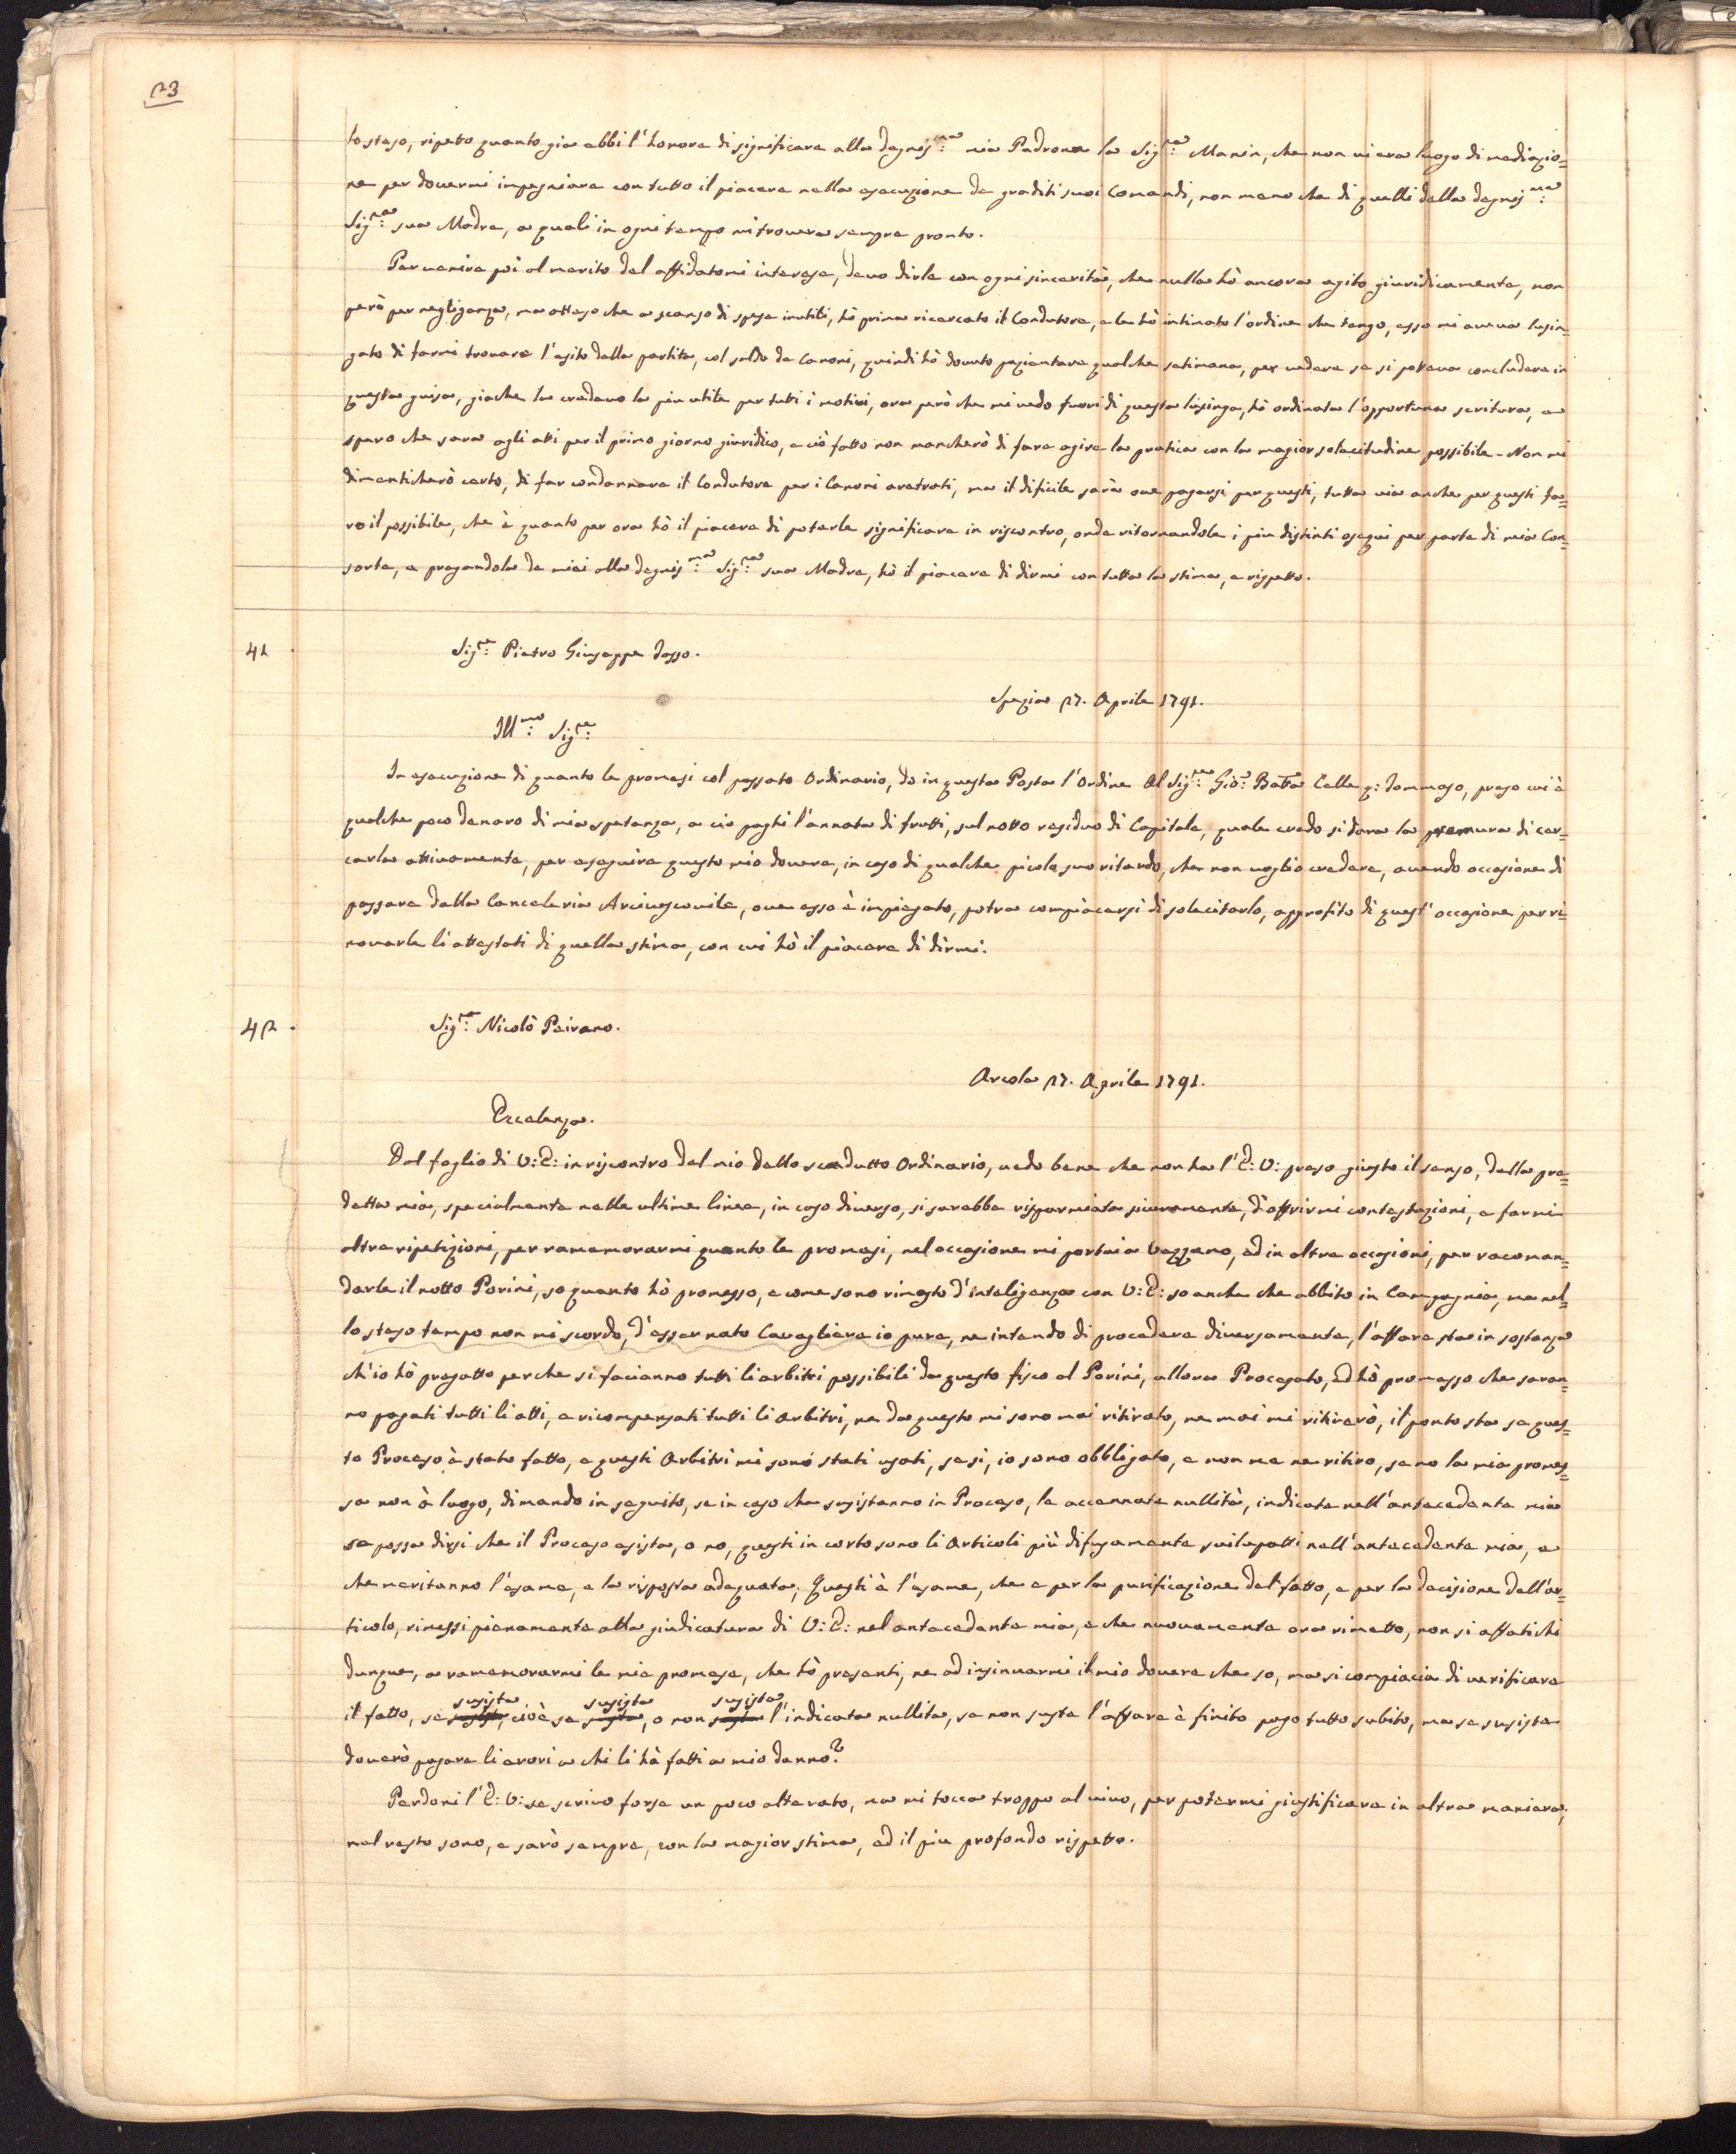 23
lo steso, ripetto quanto gia ebbi l'honore di significare alla degnis:ma mia Padrona la Sig:ra Manin, che non vi era luogo di mediazio=
ne per dovermi impegniare con tutto il piacere nella esecuzione de graditi suoi Comandi, non meno che di quelli della degnis:ma
Sig:ra sua Madre, a quali in ogni tempo mi trovera sempre pronto.
Per venire poi al merito del affidatomi interese, devo dirle con ogni sincerità, che nulla hò ancora agito giuridicamente, non
però per negligenza, ma atteso che a scanso di spese inutili, hò prima ricercato il Condutore, e le hò intimato l'ordine che tengo, esso mi aveva lusin=
gato di farmi trovare l'esito della partita, col saldo de Canoni, quindi hò dovuto pazientare qualche setimana, per vedere se si poteva concludere in
questa guisa, giache la credevo la piu utile per tutti i motivi, ora però che mi vedo fuori di questa lusinga, hò ordinata l'opportuna scritura, e
spero che sara agli atti per il primo giorno giuridico, e ciò fatto non mancherò di fare agire la pratica con la magior solecitudine possibile. Non mi
dimenticherò certo, di far condannare il Condutore per i Canoni aretrati, ma il dificile sarà ove pagarsi per questi, tutta via anche per questi fa=
ro il possibile, che è quanto per ora hò il piacere di poterle significare in riscontro, onde ritornandole i piu distinti osequi per parte di mia Con=
sorte, e pregandola de miei alla degnis:ma Sig:ra sua Madre, hò il piacere di dirmi con tutta la stima, e rispetto.
41
Sig:re Pietro Giuseppe Tosso.
Spezia 27. Aprile 1791.
Ill:mo Sig:re
In esecuzione di quanto le promesi col passato Ordinario, do in questa Posta l'Ordine Al Sig:re Gio: Batta Celle q: Tommaso, preso cui è
qualche poco denaro di mia spetanza, a cio paghi l'annata di frutti, sul notto residuo di Capitale, quale credo si dara la premura di cer=
carla attivamente, per eseguire questo mio dovere, in caso di qualche picolo suo ritardo, che non voglio credere, avendo occasione di
passare dalla Canceleria Arcivescovile, ove esso è impiegato, potra compiacersi di solecitarlo, approfito di quest'occasione per ri=
novarle li attestati di quella stima, con cui hò il piacere di dirmi.
42.
Sig:re Nicolò Peirano.
Arcola 27. Aprile 1791.
Eccelenza.
Dal foglio di V:E: in riscontro del mio dello scadutto Ordinario, vedo bene che non ha l'E:V: preso giusto il senso, della pre=
detta mia, specialmente nelle ultime linee, in caso diverso, si sarebbe risparmiata sicuramente, d'offrirmi contestazioni, e farmi
altre ripetizioni, per ramemorarmi quanto le promesi, nel occasione mi portai a Vezzano, ed in altre occasioni, per racoman=
darle il notto Porini, so quanto hò promesso, e come sono rimasto d'inteligenza con V:E: so anche che abbito in Campagnia, ma nel=
lo steso tempo non mi scordo, d'esser nato Cavagliere io pure, ne intendo di procedere diversamente, l'affare sta in sostanza
ch'io hò pregatto perche si facianno tutti li arbitri possibili da questo fisco al Porini, allora Procesato, ed hò promesso che saran=
no pagati tutti li atti, e ricompensati tutti li Arbitri, ne da questo mi sono mai ritirato, ne mai mi ritirerò, il ponto sta se ques=
to Proceso è stato fatto, e questi Arbitri mi sono stati usati, se si, io sono obbligato, e non me ne ritiro, se no la mia promes=
sa non à luogo, dimando in seguito, se in caso che susistanno in Proceso, le accennate nullità, indicate nell'antecedente mia
se possa dirsi che il Proceso esista, o no, questi in corto sono li Articoli più difusamente svilupatti nell'antecedente mia, e
che meritanno l'esame, e la risposta adequata; Questi è l'esame, che e per la purificazione del fatto, e per la decisione dell'ar=
ticolo, rimessi pienamente alla giudicatura di V:E: nel antecedente mia, e che nuovamente ora rimetto, non si affatichi
dunque, a ramemorarmi le mie promese, che hò presenti, ne ad insinuarmi il mio dovere che so, ma si compiacia di verificare
il fatto, se susista, cioè se susista, o non susista l'indicata nullita, se non susta l'affare è finito pago tutto subito, ma se susiste
doverò pagare li erori a chi li hà fatti a mio danno?
Perdoni l'E:V: se scrivo forse un poco alterato, ma mi tocca troppo al vivo, per potermi giustificare in altra maniera,
nel resto sono, e sarò sempre, con la magior stima, ed il piu profondo rispetto.